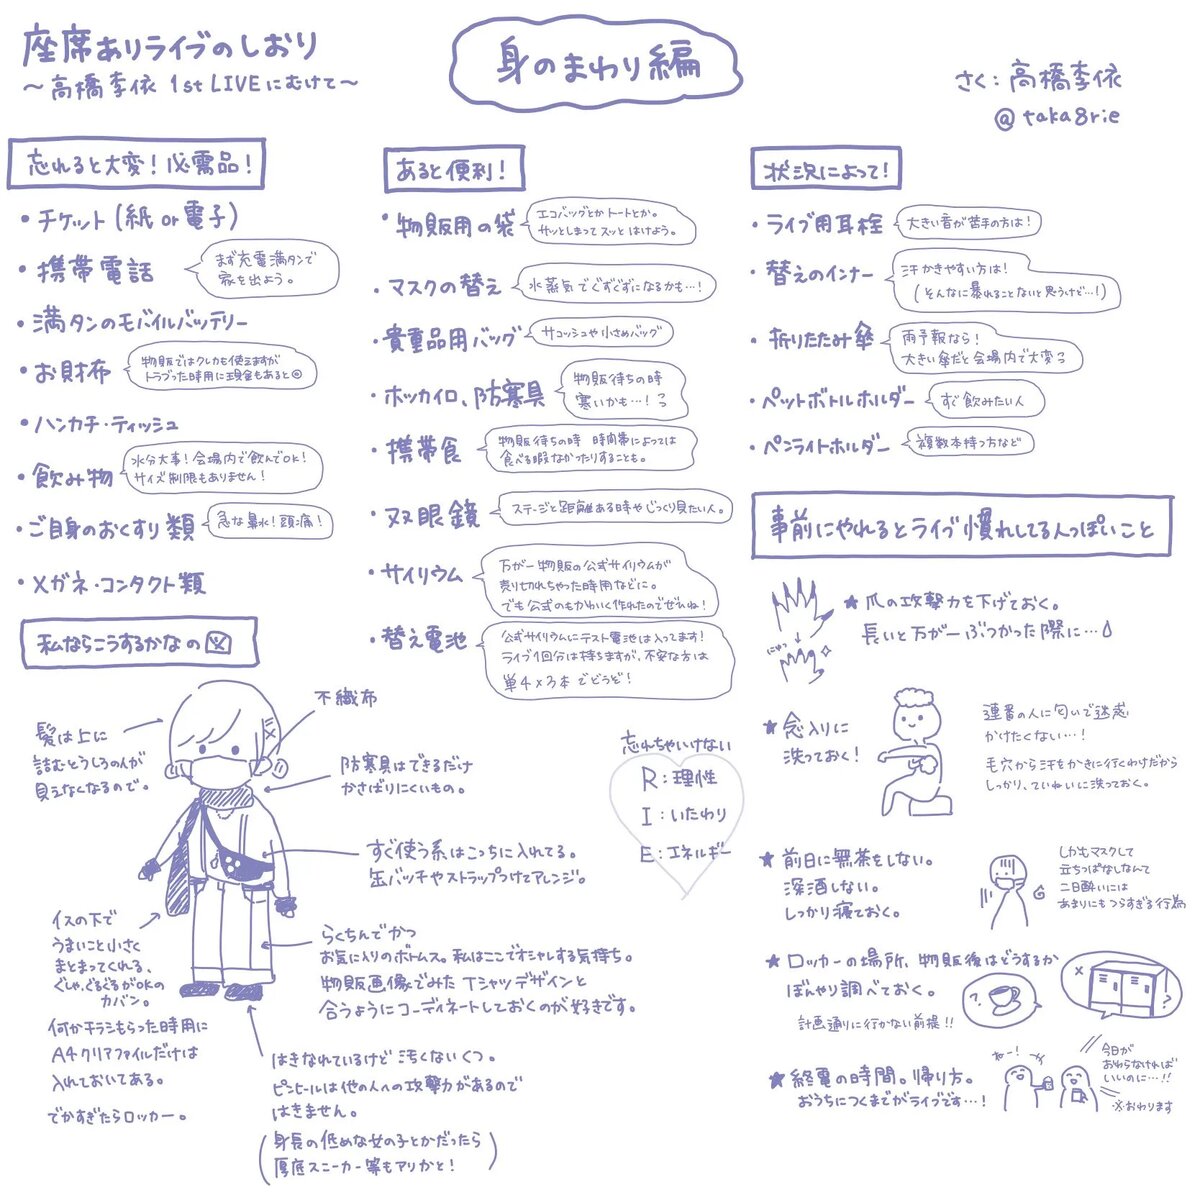 座席ありライブのしおり
〜高橋李依 1st LIVEにむけて〜
身のまわり編
さく：高橋李依
@taka8rie
忘れると大変！必需品！
・チケット(紙or電子)
・携帯電話
まず充電満タンで
家を出よう。
・満タンのモバイルバッテリー
・お財布
物販ではクレカも使えますが
トラブった時用に現金もあると◎
・ハンカチ・ティッシュ
・飲み物
水分大事！会場内で飲んでOK！
サイズ制限もありません！
・ご自身のおくすり類
急な鼻水！頭痛！
・メガネ・コンタクト類
あると便利！
・物販用の袋
エコバッグとかトートとか。
サッとしまってスッとはけよう。
・マスクの替え
水蒸気でぐずぐずになるかも…！
・貴重品用バッグ
サコッシュや小さめバッグ
・ホッカイロ、防寒具
物販待ちの時
寒いかも…！
・携帯食
物販待ちの時 時間帯によっては
食べる暇なかったりすることも。
・双眼鏡
ステージと距離ある時やじっくり見たい人。
・サイリウム
万が一物販の公式サイリウムが
売り切れちゃった時用などに。
でも公式のもかわいく作れたのでぜひね！
・替え電池
公式サイリウムにテスト電池は入ってます！
ライブ1回分は持ちますが、不安な方は
単4×3本でどうぞ！
状況によって！
・ライブ用耳栓
大きい音が苦手の方は！
・替えのインナー
汗かきやすい方は！
(そんなに暴れることないと思うけど…！)
・折りたたみ傘
雨予報なら！
大きい傘だと会場内で大変っ
・ペットボトルホルダー
すぐ飲みたい人
・ペンライトホルダー
複数本持つ方など
事前にやれるとライブ慣れしてる人っぽいこと
★爪の攻撃力を下げておく。
長いと万が一ぶつかった際に…
にゅっ
★念入りに
洗っておく！
連番の人に匂いで迷惑
かけたくない…！
毛穴から汗をかきに行くわけだから
しっかり、ていねいに洗っておく。
★前日に無茶をしない。
深酒しない。
しっかり寝ておく。
しかもマスクして
立ちっぱなしなんて
二日酔いには
あまりにもつらすぎる行為
★ロッカーの場所、物販後はどうするか
ぼんやり調べておく。
計画通りに行かない前提！！
?
?
★終電の時間。帰り方。
おうちにつくまでがライブです…！
ねー！
今日が
おわらなければ
いいのに…！！
※おわります
私ならこうするかなの図
髪は上に
詰むとうしろの人が
見えなくなるので。
不織布
防寒具はできるだけ
かさばりにくいもの。
すぐ使う系はこっちに入れてる。
缶バッチやストラップつけてアレンジ。
イスの下で
うまいこと小さく
まとまってくれる、
ぐしゃ、ぐるぐるがOKの
カバン。
何かチラシもらった時用に
A4クリアファイルだけは
入れておいてある。
でかすぎたらロッカー。
らくちんでかつ
お気に入りのボトムス。私はここでオシャレする気持ち。
物販画像でみたTシャツデザインと
合うようにコーディネートしておくのが好きです。
はきなれているけど汚くないくつ。
ピンヒールは他の人への攻撃力があるので
はきません。
(身長の低めな女の子とかだったら
厚底スニーカー等もアリかと！)
忘れちゃいけない
R：理性
I：いたわり
E：エネルギー